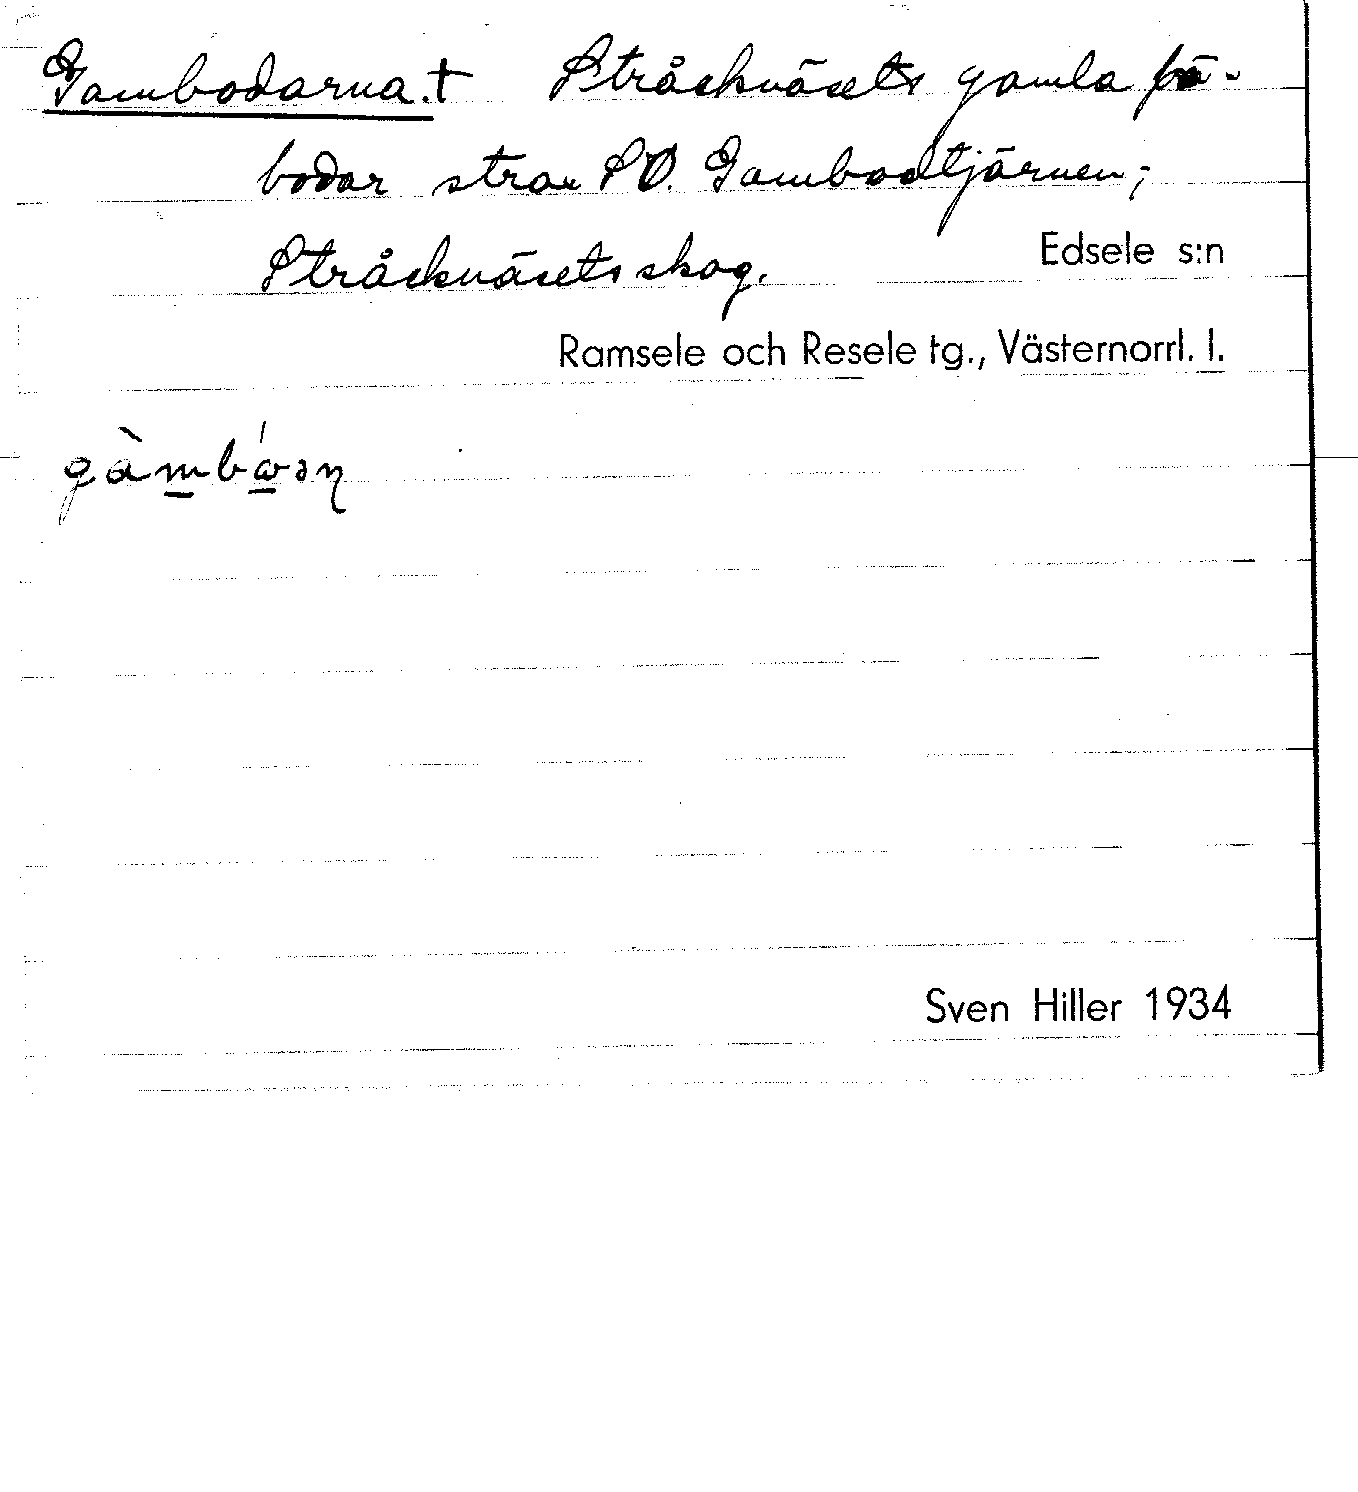 Gambodarna.† Stråcknäsets gamla fä-
bodar strax SO. Gambodtjärnen;
Stråcknäsets skog. Edsele s:n
Ramsele och Resele tg., Västernorrl. l.
Sven Hiller 1934